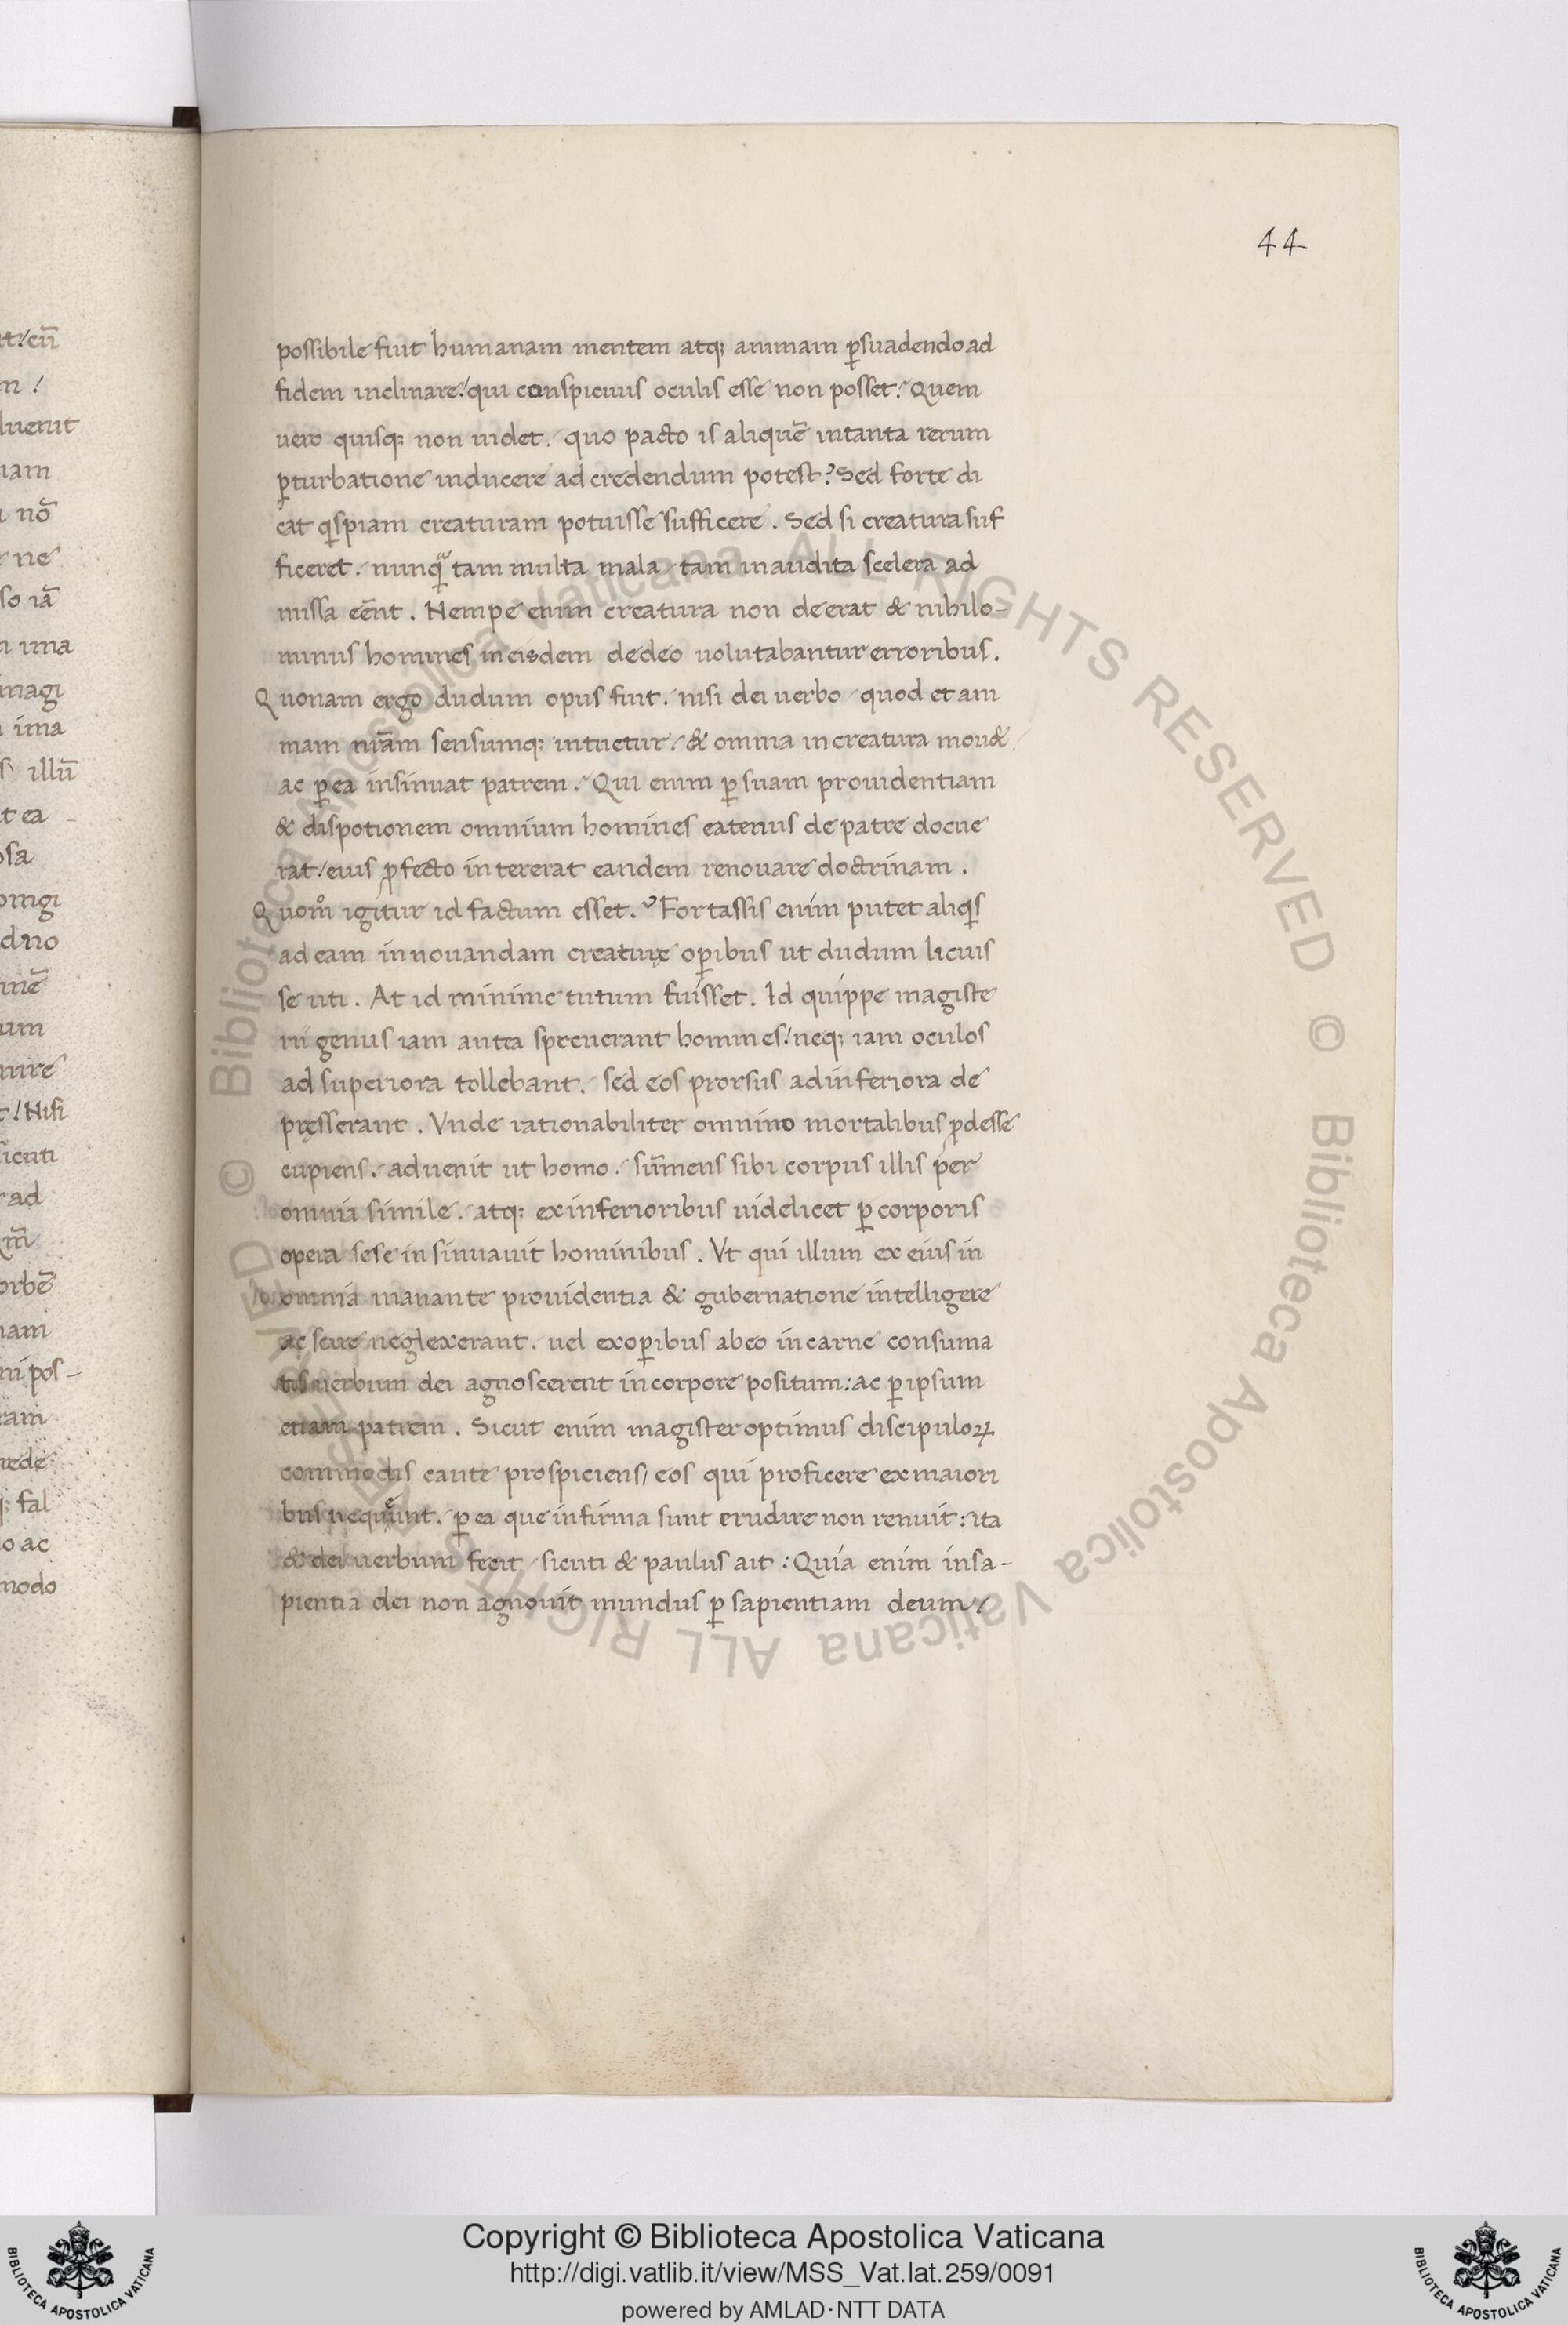 44
possibile fuit humanam mentem atq; animam ꝑsuadendo ad
fidem inclinare! qui conspicuus oculis esse non posset. Quem
uero quisq; non uidet. quo pacto is aliquē in tanta rerum
ꝑturbatione inducere ad credendum potest? Sed forte di
cat qͥspiam creaturam potuisse sufficere. Sed si creatura suf
ficeret. nunqᷓ tam multa mala tam inaudita scelera ad
missa eēnt. Nempe enim creatura non deerat & nihilo-
minus homines in eisdem de deo uolutabantur erroribus.
Quonam ergo dudum opus fuit. nisi dei uerbo quod et ani
mam nr̄am sensumq; intuetur. & omnia in creatura mou&
ac ꝑ ea insinuat patrem. Qui enim ꝑ suam prouidentiam
& dispotionem omnium homines eatenus de patre docue
rat! eius ꝓfecto intererat eandem renouare doctrinam.
Quomͦ igitur id factum esset.? Fortassis enim putet aliqͥs
ad eam innouandam creaturę oꝑibus ut dudum licuis
se uti. At id minime tutum fuisset. Id quippe magiste
rii genus iam antea spreuerant homines! neq; iam oculos
ad superiora tollebant. sed eos prorsus ad inferiora de
pręsserant. Vnde rationabiliter omnino mortalibus ꝓdesse
cupiens. aduenit ut homo. sum̄ens sibi corpus illis per
omnia simile. atq; ex inferioribus uidelicet ꝑ corporis
opera sese insinuauit hominibus. Vt qui illum ex eius in
omnia manante prouidentia & gubernatione intelligere
ac scire neglexerant. uel ex oꝑibus ab eo in carne consuma
tis uerbum dei agnoscerent in corpore positum: ac ꝑ ipsum
etiam patrem. Sicut enim magister optimus discipuloꝝ
commodis caute prospiciens, eos qui proficere ex maiori
bus nequeunt. ꝑ ea que infirma sunt erudire non renuit: ita
& dei uerbum fecit sicuti & paulus ait: Quia enim in sa-
pientia dei non agnouit mundus ꝑ sapientiam deum!
© Biblioteca Apostolica Vaticana ALL RIGHTS RESERVED © Biblioteca Apostolica Vaticana ALL RIGHTS RESERVED
Copyright © Biblioteca Apostolica Vaticana
http://digi.vatlib.it/view/MSS_Vat.lat.259/0091
powered by AMLAD·NTT DATA
BIBLIOTECA APOSTOLICA VATICANA
BIBLIOTECA APOSTOLICA VATICANA